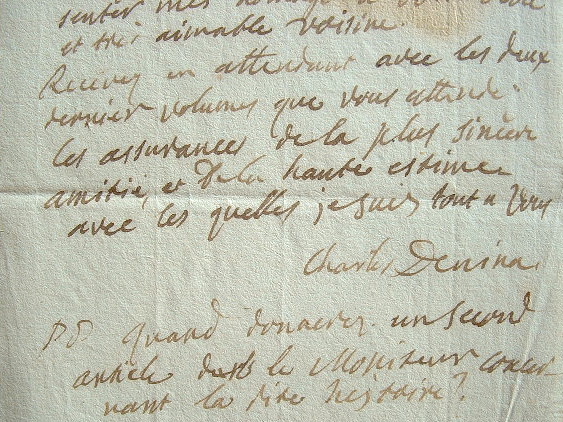 senter mes
et très aimable voisine.
Recevez en attendant avec les deux
dernier volumes que vous attende
les assurances de la plus sincère
amitié, et de la haute estime
avec les quelles je suis tout a vous
Charles Denina.
PS quand donnerez un second
article dans le Moniteur concer
nant la dite histoire?